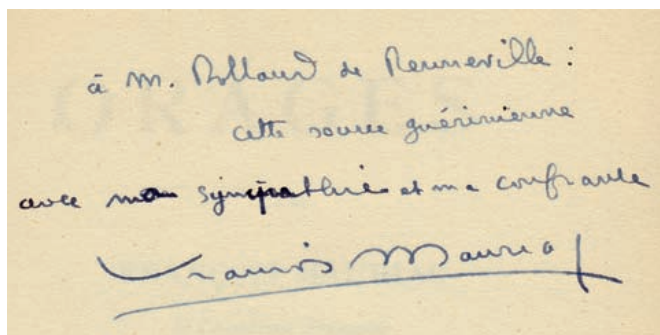 à M. Rolland de Renneville :
ORAGES
cette source guérinienne
avec ma sympathie et ma confiance
François Mauriac